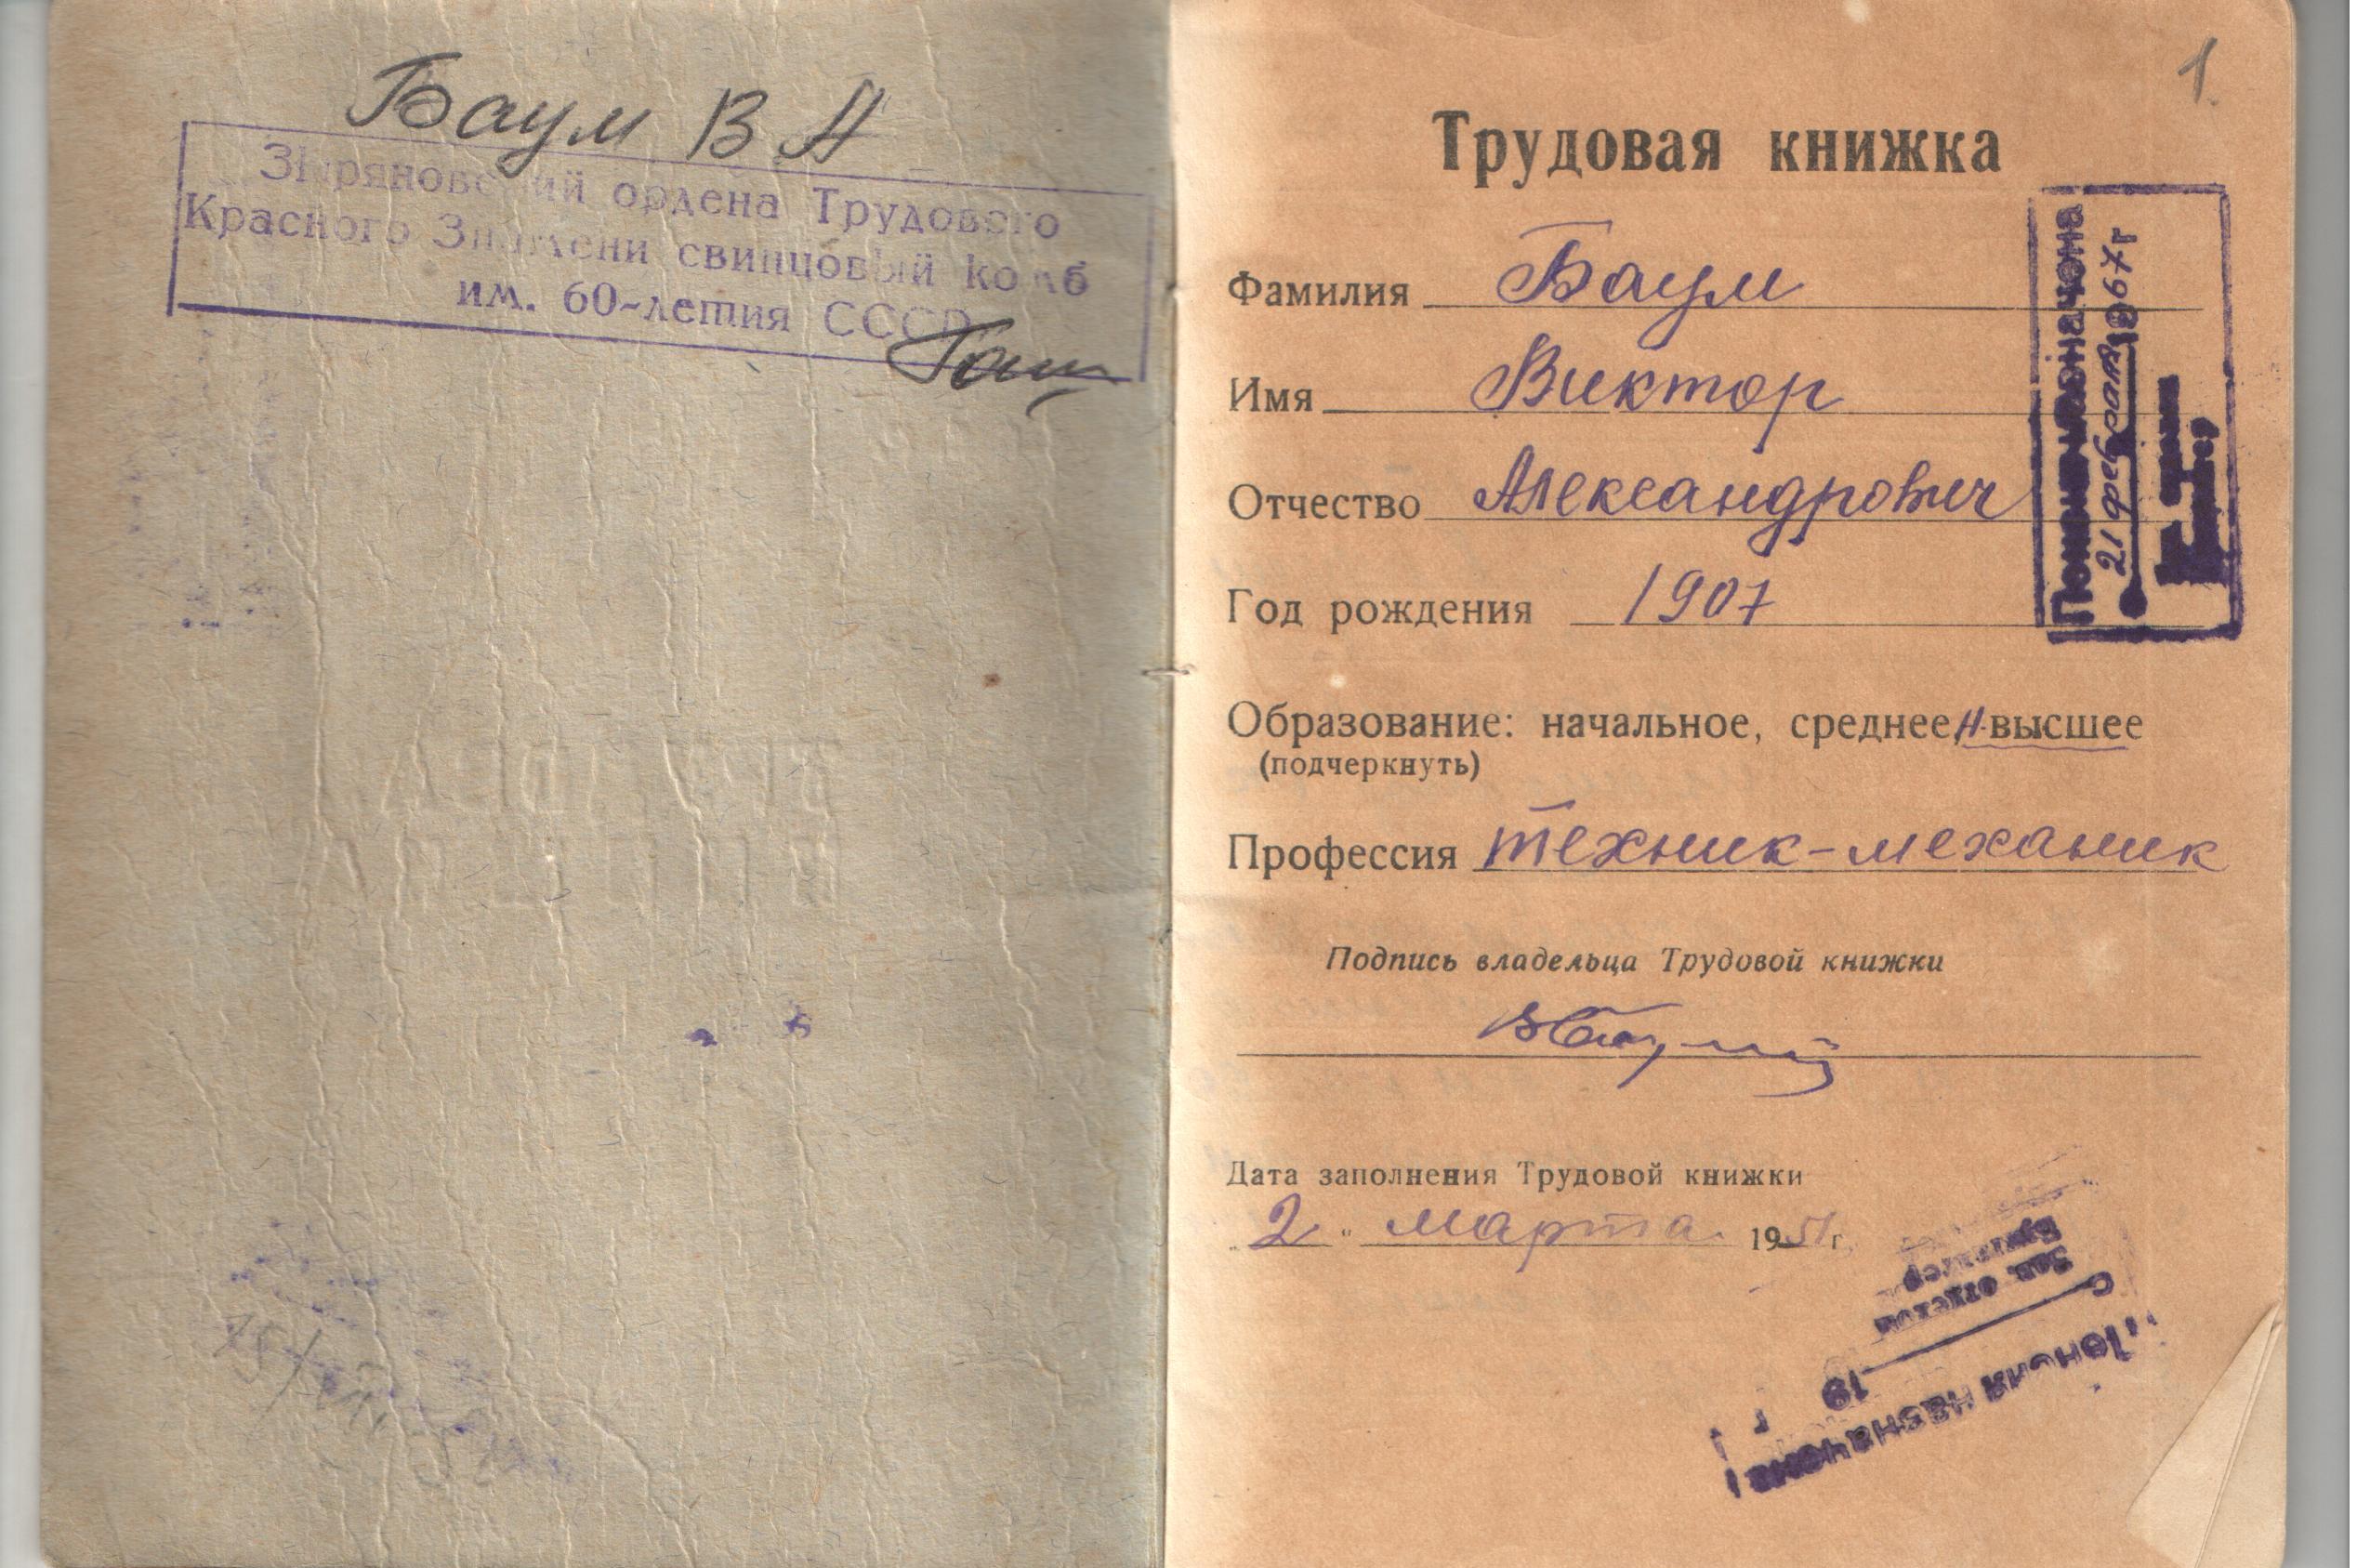 Баум В А
Зыряновский ордена Трудового
Красного Знамени свинцовый комб
им. 60-летия СССР
1
Трудовая книжка
Фамилия Баум
Имя Виктор
Отчество Александрович
Год рождения 1907
Образование: начальное, среднее, н-высшее
(подчеркнуть)
Профессия техник-механик
Подпись владельца Трудовой книжки
Дата заполнения Трудовой книжки
"2" марта 1951 г.
Пенсия назначена
21 февраля 1967 г
Пенсия назначена
19 г
Зав. отделом